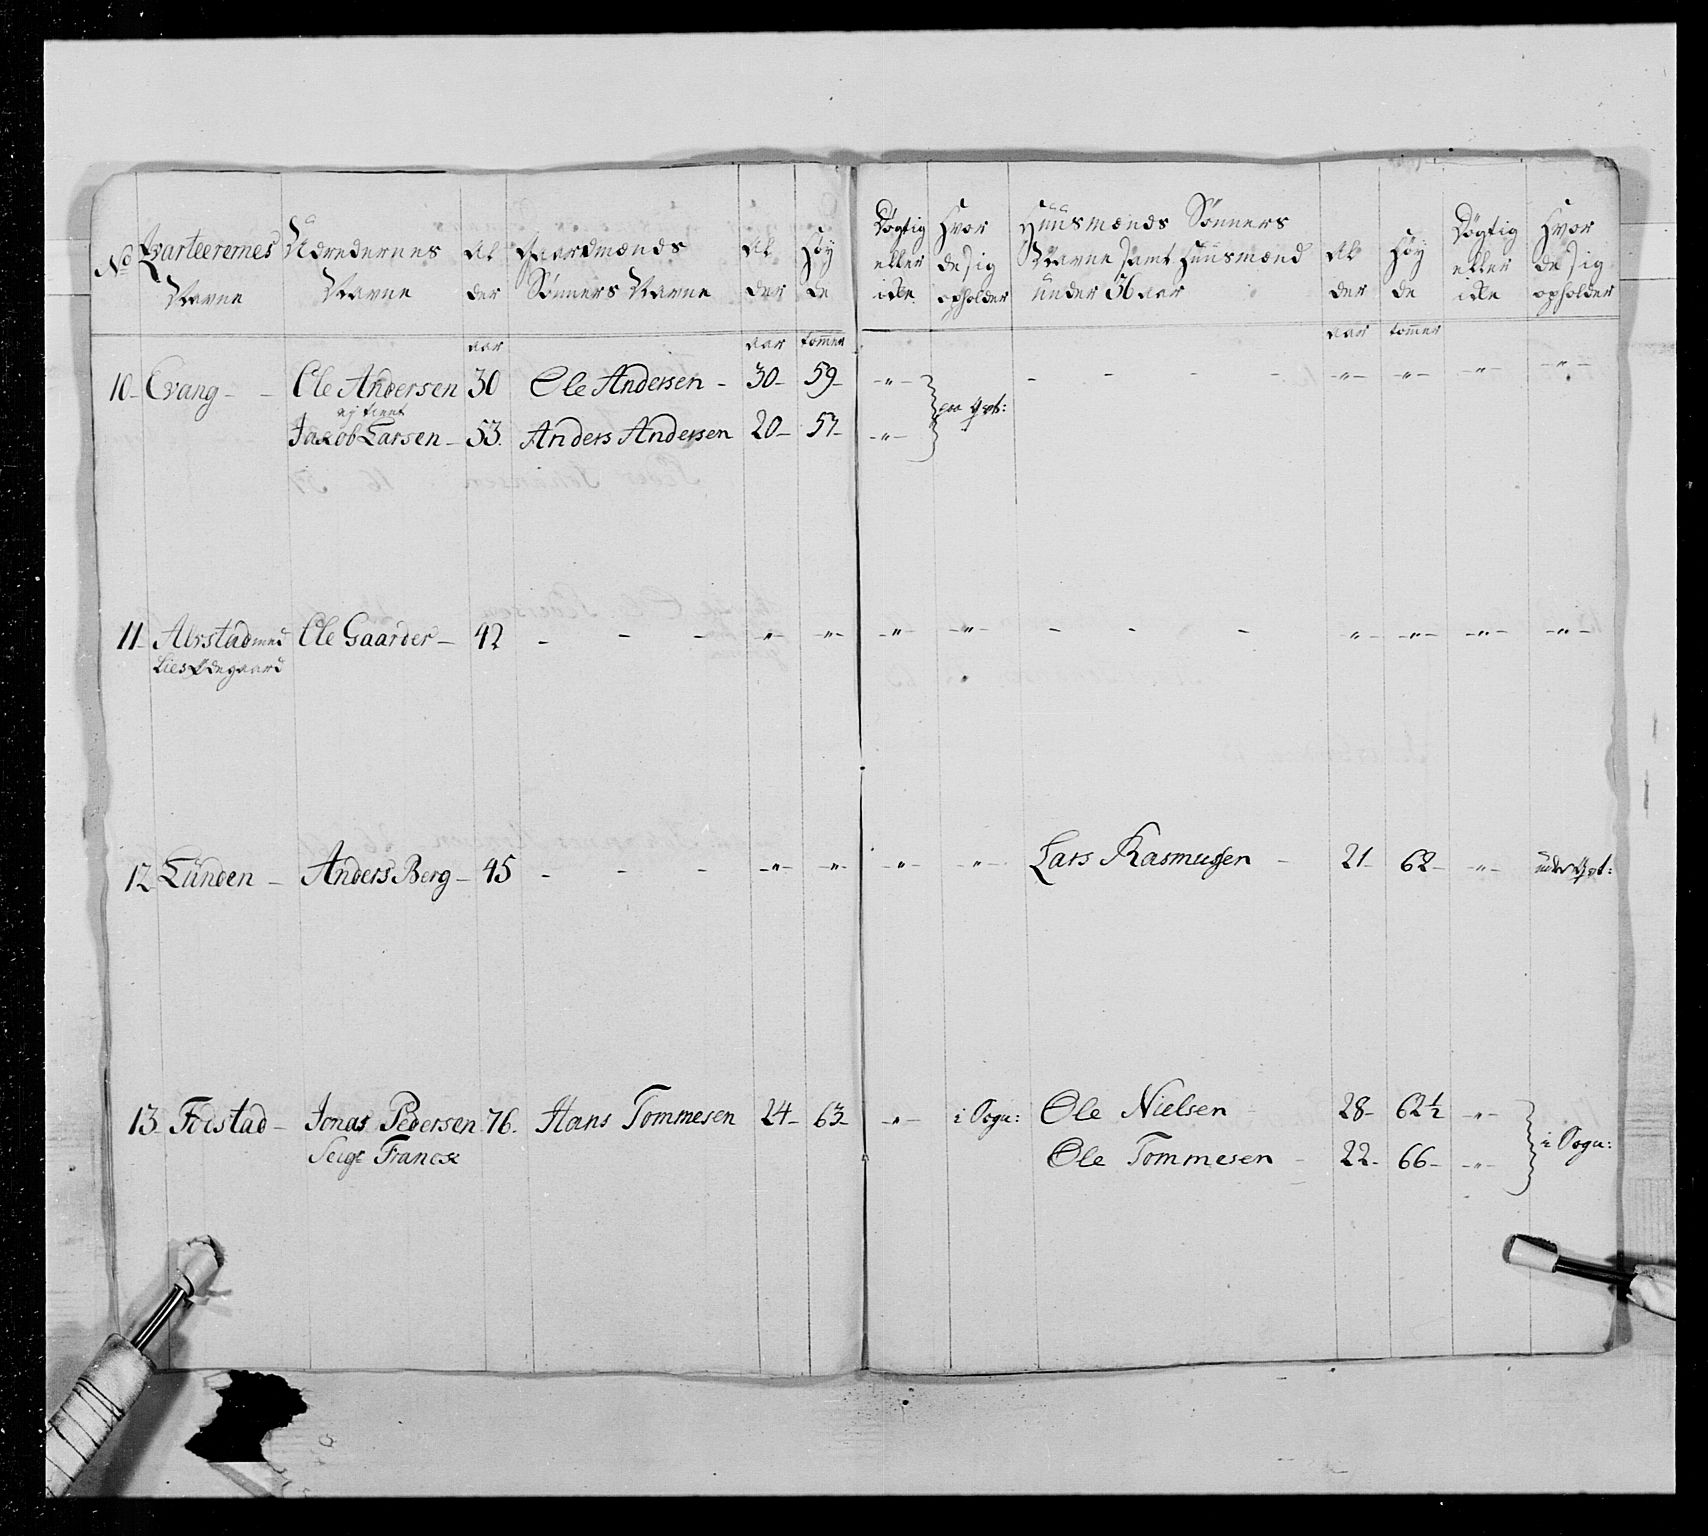 No Qvarteerernes Navne | Væredernes Navne | Al der | Gaardmænds Sønners Navne | Al der | Høy de | Døgtig eller ikke | Hvor de sig opholder | Huusmænds Sønners Navne samt Huusmænd under 36 aar | Al der | Høy de | Døgtig eller ikke | Hvor de sig opholder
aar | aar | tommer | aar | tommer
10 Evang - - Ole Andersen 30 Ole Andersen - 30 - 59 - -„- - - - - -„- -„- -„- -„-
ej tient
Jacob Larsen - 53. Anders Andersen 20 - 57 - -„-
11 Alvstad med Ole Gaarder - 42 - - - -„- -„- -„- -„- - - - -„- -„- -„- -„-
Lies Ødegaard
12 Lunden - Anders Berg - 45 - - - -„- -„- -„- -„- Lars Rasmussen - 21 62 - -„-
13 Foestad - Jonas Pedersen 76. Hans Tommesen 24 - 63 - -„- i Sogn: Ole Nielsen 28 - 62½ -„- i Sogn:
Ole Tommesen - 22 - 66 - -„-